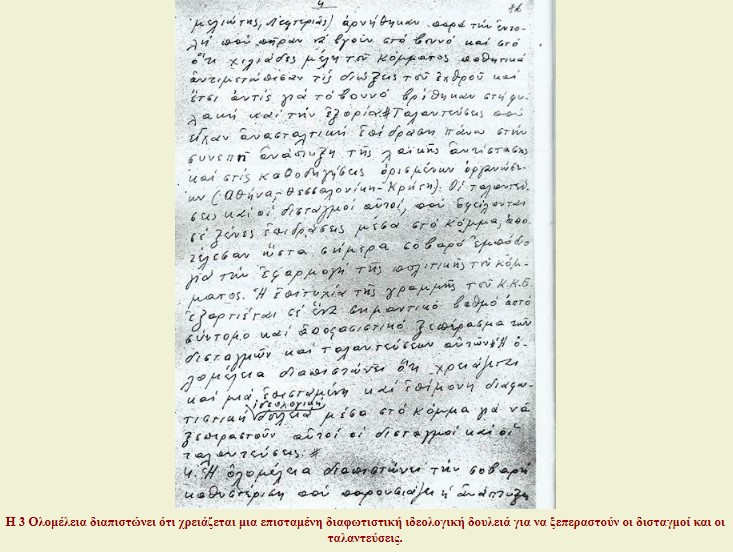 4 82
μελιώτης, Λευτεριᾶς) ἀρνήθηκαν παρά τήν ἐντο-
λή πού πῆραν νά βγοῦν στό βουνό καί στό
ὅτι χιλιάδες μέλη τοῦ κόμματος παθητικά
ἀντιμετώπισαν τίς διώξεις τοῦ ἐχθροῦ καί
ἔτσι ἀντίς γιά τό βουνό βρέθηκαν στή φυ-
λακή καί τήν ἐξορία. # Ταλαντεύσεις πού
εἶχαν ἀνασταλτική ἐπίδραση πάνω στήν
συνεπῆ ἀνάπτυξη τῆς λαϊκῆς ἀντίστασης
καί στίς καθοδηγήσεις ὁρισμένων ὀργανώσε-
ων (Ἀθήνα,-Θεσσαλονίκη-Κρήτη). Οἱ ταλαντεύ-
σεις καί οἱ δισταγμοί αὐτοί, πού ὀφείλονται
σέ ξένες ἐπιδράσεις μέσα στό κόμμα, ἀπο-
τέλεσαν ὥστα σήμερα σοβαρό ἐμπόδιο
γιά τήν ἐφαρμογή τῆς πολιτικῆς τοῦ κόμ-
ματος. Ἡ ἐπιτυχία τῆς γραμμῆς τοῦ Κ.Κ.Ε.
ἐξαρτιέται σέ ἕνα σημαντικό βαθμό ἀπό τό
σύντομο καί ἀποφασιστικό ξεπέρασμα τῶν
δισταγμῶν καί ταλαντεύσεων αὐτῶν # Ἡ ὁ-
λομέλεια διαπιστώνει ὅτι χρειάζεται
καί μιά ἐπισταμένη καί ἐπίμονη διαφω-
ἰδεολογική
τιστική δουλειά μέσα στό κόμμα γιά νά
ξεπεραστοῦν αὐτοί οἱ δισταγμοί καί οἱ
ταλαντεύσεις. #
4. Ἡ ὁλομέλεια διαπιστώνει τήν σοβαρή
καθυστέριση πού παρουσιάζει ἡ ἀνάπτυξη
Η 3 Ολομέλεια διαπιστώνει ότι χρειάζεται μια επισταμένη διαφωτιστική ιδεολογική δουλειά για να ξεπεραστούν οι δισταγμοί και οι
ταλαντεύσεις.